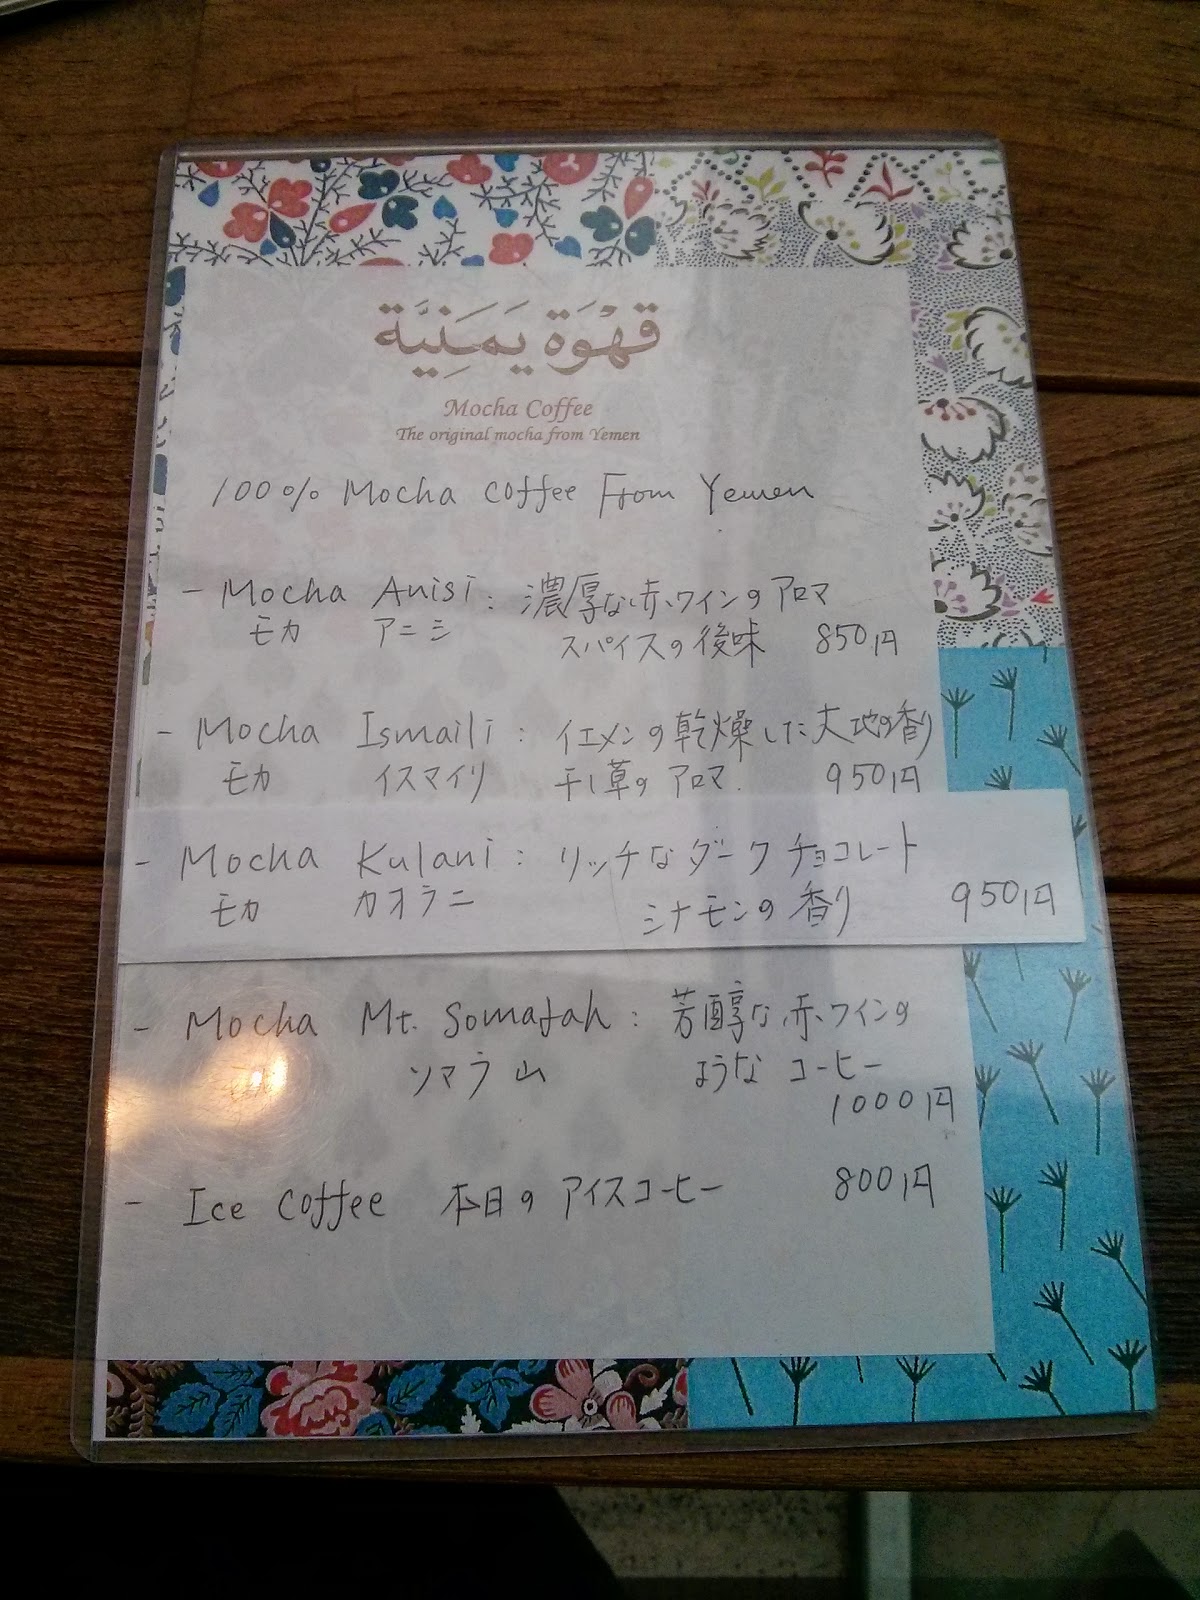 قَهْوَة يَمَنِيَّة
Mocha Coffee
The original mocha from Yemen
100% Mocha Coffee From Yemen
- Mocha Anisi : 濃厚な赤ワインのアロマ
モカ アニシ スパイスの後味 850円
- Mocha Ismaili : イエメンの乾燥した大地の香り
モカ イスマイリ 干し草のアロマ. 950円
- Mocha Kulani : リッチなダークチョコレート
モカ カオラニ シナモンの香り 950円
- Mocha Mt. Somarah : 芳醇な赤ワインの
ソマラ山 ようなコーヒー
1000円
- Ice Coffee 本日のアイスコーヒー 800円